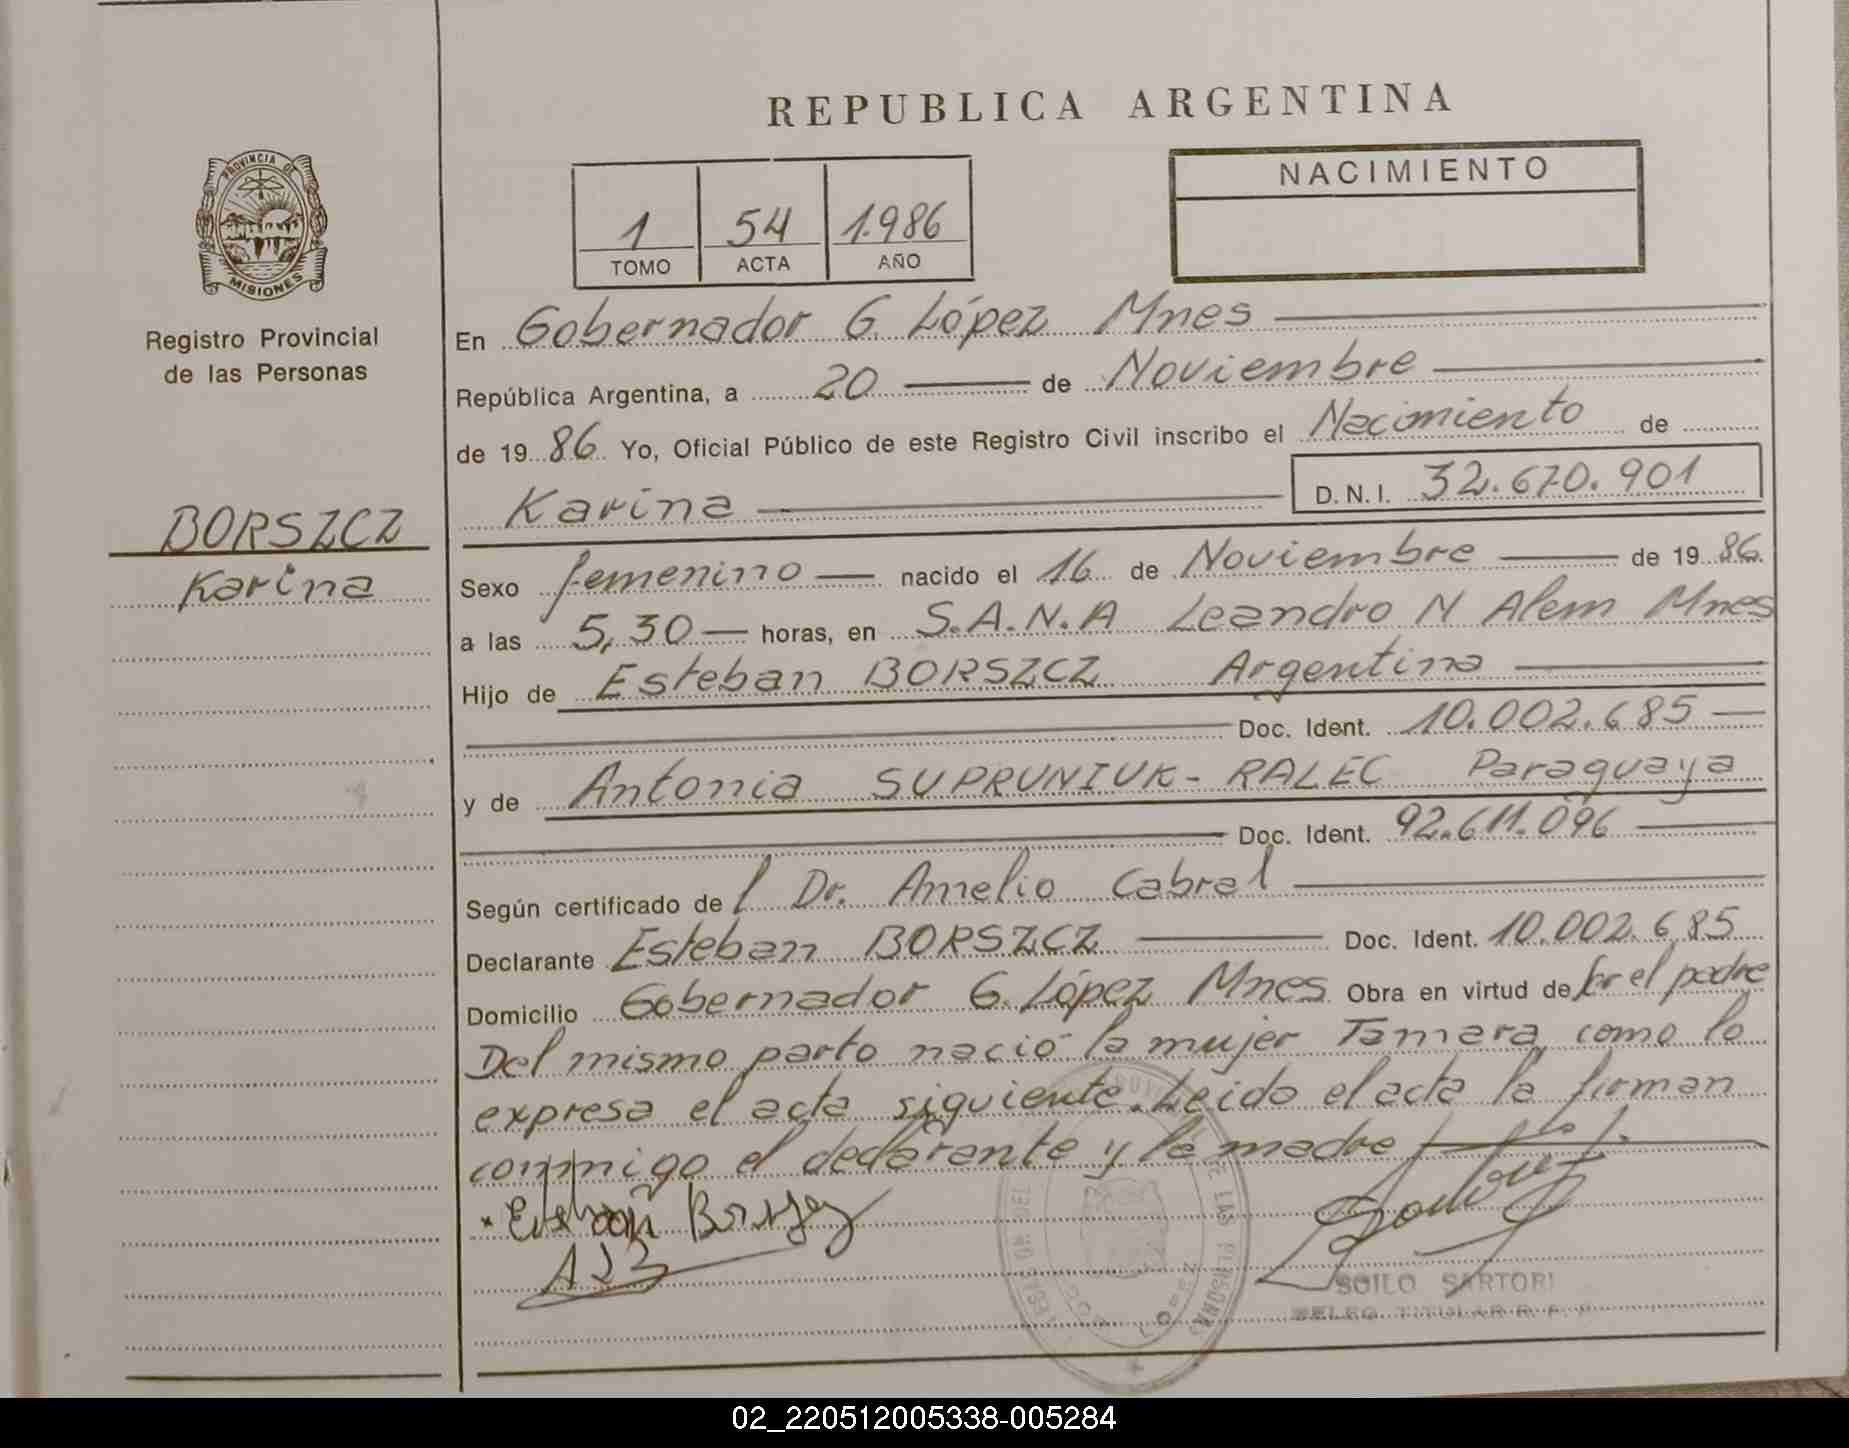 REPUBLICA ARGENTINA
PROVINCIA DE
MISIONES
Registro Provincial
de las Personas
BORSZCZ
Karina
1 54 1.986
TOMO ACTA AÑO
NACIMIENTO
En Gobernador G. López Mnes
República Argentina, a 20 de Noviembre
de 1986 Yo, Oficial Público de este Registro Civil inscribo el Nacimiento de
Karina D.N.I. 32.670.901
Sexo femenino nacido el 16 de Noviembre de 1986.
a las 5,30 horas, en S.A.N.A Leandro N Alem Mnes
Hijo de Esteban BORSZCZ Argentina
Doc. Ident. 10.002.685
y de Antonia SUPRUNIUK-RALEC Paraguaya
Doc. Ident. 92.611.096
Según certificado del Dr. Amelio Cabral
Declarante Esteban BORSZCZ Doc. Ident. 10.002.685
Domicilio Gobernador G. López Mnes Obra en virtud de ser el padre
Del mismo parto nació la mujer Tamara, como lo
expresa el acta siguiente. Leido el acta la firman
conmigo el declarante y la madre
Esteban
SOILO SARTORI
TITULAR R.
DE LAS PERSONAS
LOPEZ
02_220512005338-005284